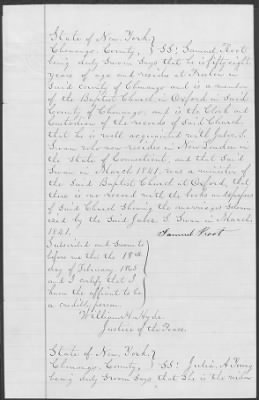 State of New York }
Chenango County, } SS: Samuel Root
being duly sworn says that he is fifty eight
years of age and resides at Preston in
said County of Chenango and is a member
of the Baptist Church in Oxford in said
County of Chenango, and is the Clerk and
Custodian of the records of said Church
that he is well acquainted with Jabez S.
Swan who now resides in New London in
the State of Connecticut, and that said
Swan in March 1841, was a minister of
the said Baptist Church at Oxford, that
there is no record with the books and papers
of said Church showing the marriages solemn
ized by the said Jabez S. Swan in March
1841.
Samuel Root
Subscribed and sworn to
before me this the 18th
day of February 1865
and I certify that I
know the affiant to be
a credible person.
William H. Hyde.
Justice of the Peace.
State of New York }
Chenango County, } SS: Julia A
being duly sworn says that she is the widow